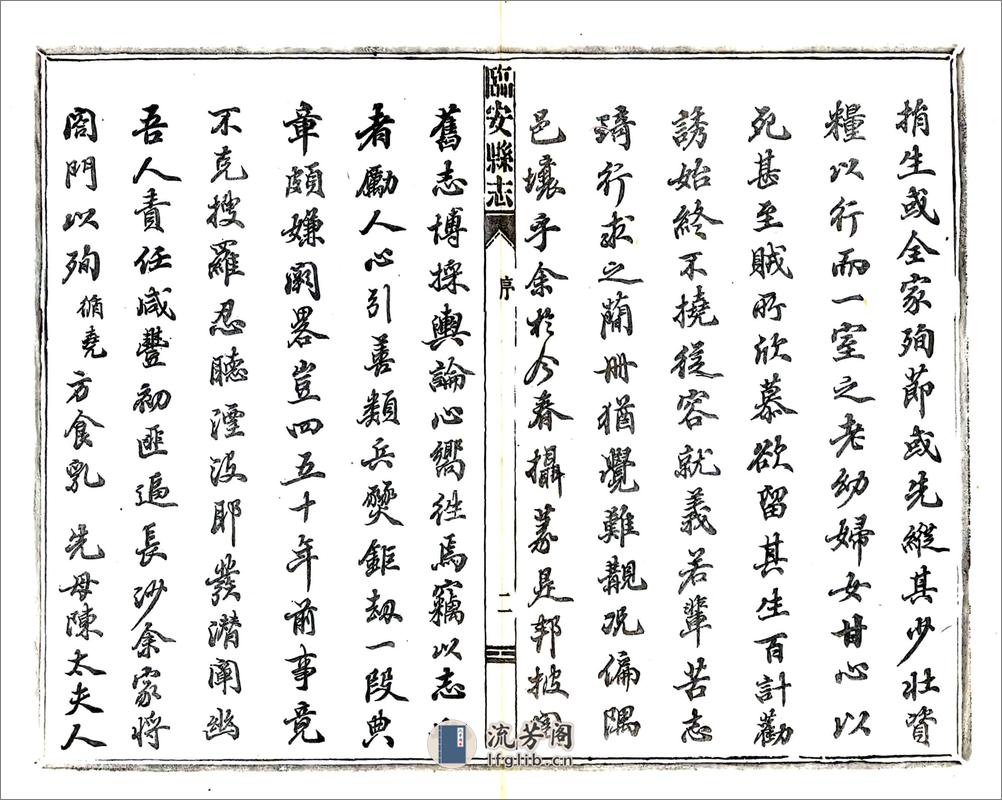 捐生或全家殉節或先縱其少壯資
糧以行而一室之老幼婦女甘心以
死甚至賊所欣慕欲留其生百計勸
誘始終不撓從容就義若輩苦志
行求之蘭冊猶覺難覯况偏隅
邑壤乎余於今春攝篆是邦披
臨安縣志
序
二
舊志博採輿論心嚮往焉竊以志
者勵人心引善類兵燹鉅劫一段典
章頗嫌闕畧豈四五十年前事竟
不克搜羅忍聽湮没耶發潛闡幽
吾人責任咸豐初匪逼長沙余家將
闔門以殉循堯方食乳先母陳太夫人
流芳閣
lfglib.cn